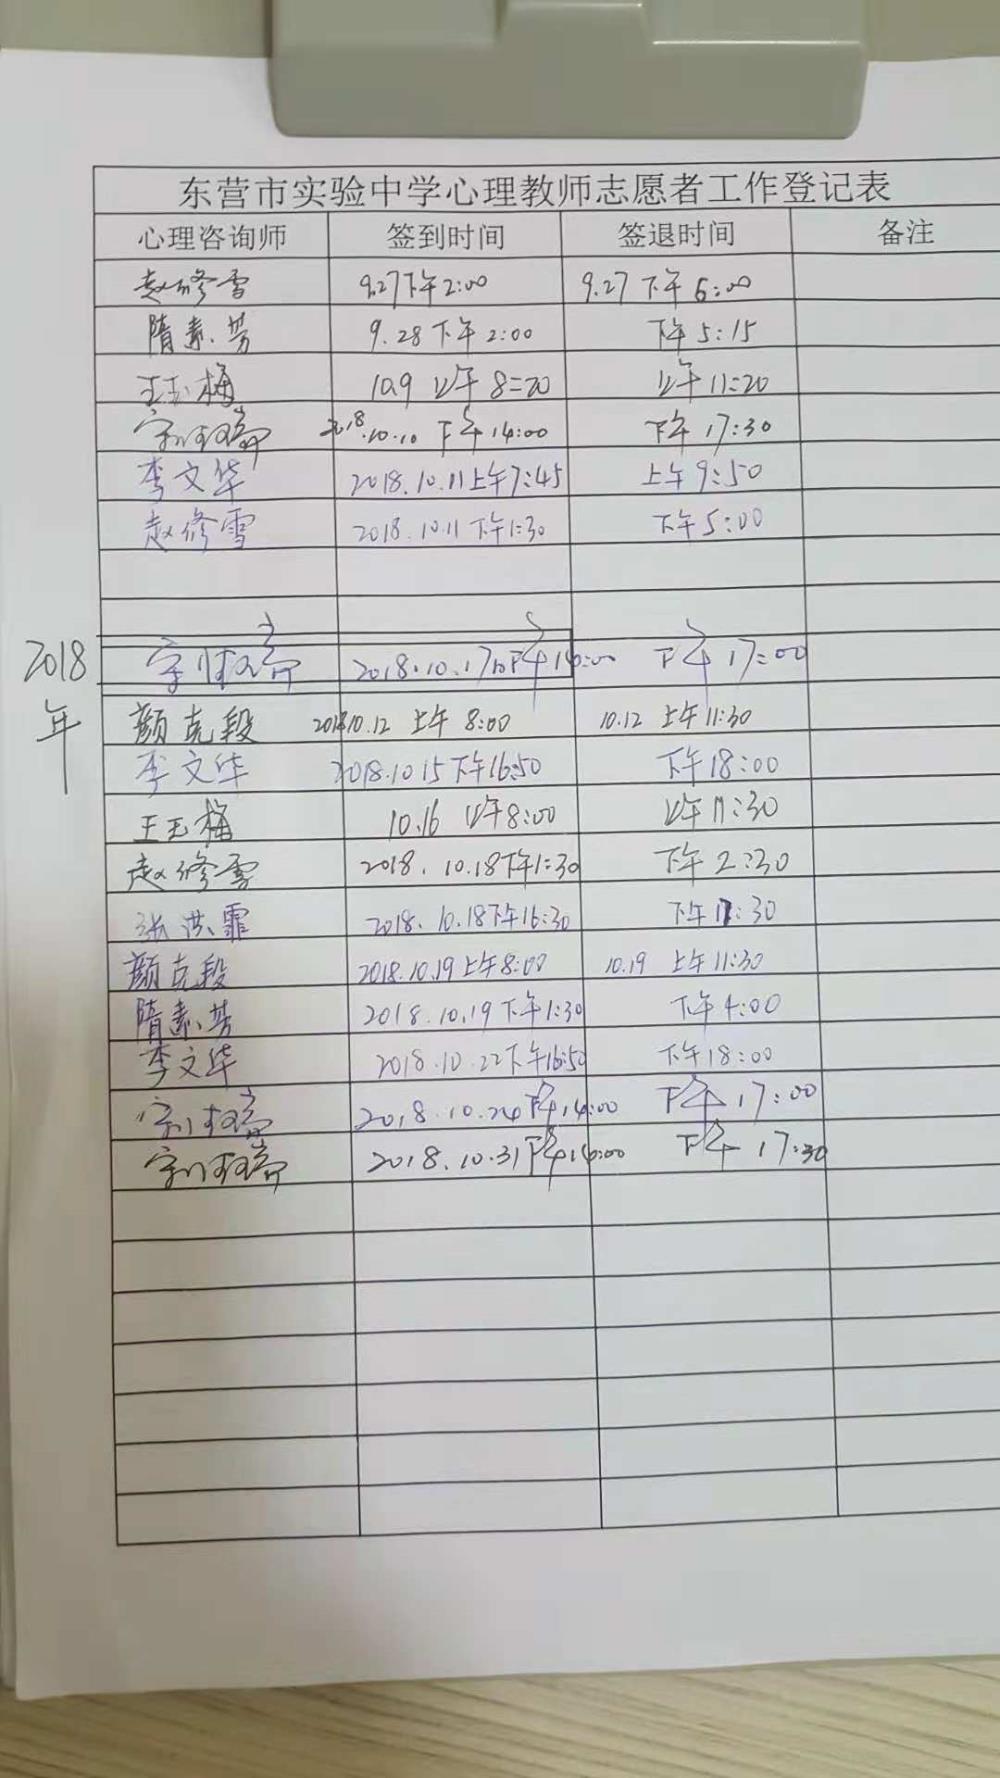 东营市实验中学心理教师志愿者工作登记表
心理咨询师 签到时间 签退时间 备注
赵修雪 9.27下午2:00 9.27 下午 6:00
隋素芳 9.28 下午 2:00 下午 5:15
王玉梅 10.9 上午 8=20 上午 11:20
2018.10.10 下午 14:00 下午 17:30
李文华 2018.10.11上午7:45 上午 9:50
赵修雪 2018.10.11 下午1:30 下午 5:00
2018.10.17 下午14:00 下午 17:00
2018
年
颜克段 2018.10.12 上午 8:00 10.12 上午 11:30
李文华 2018.10.15 下午16:50 下午 18:00
王玉梅 10.16 上午 8:00 上午 11:30
赵修雪 2018.10.18下午1:30 下午 2:30
张洪霏 2018.10.18下午16:30 下午 17:30
颜克段 2018.10.19上午8:00 10.19 上午 11:30
隋素芳 2018.10.19 下午1:30 下午 4:00
李文华 2018.10.22下午16:50 下午 18:00
2018.10.24 下午14:00 下午 17:00
2018.10.31 下午14:00 下午 17:30